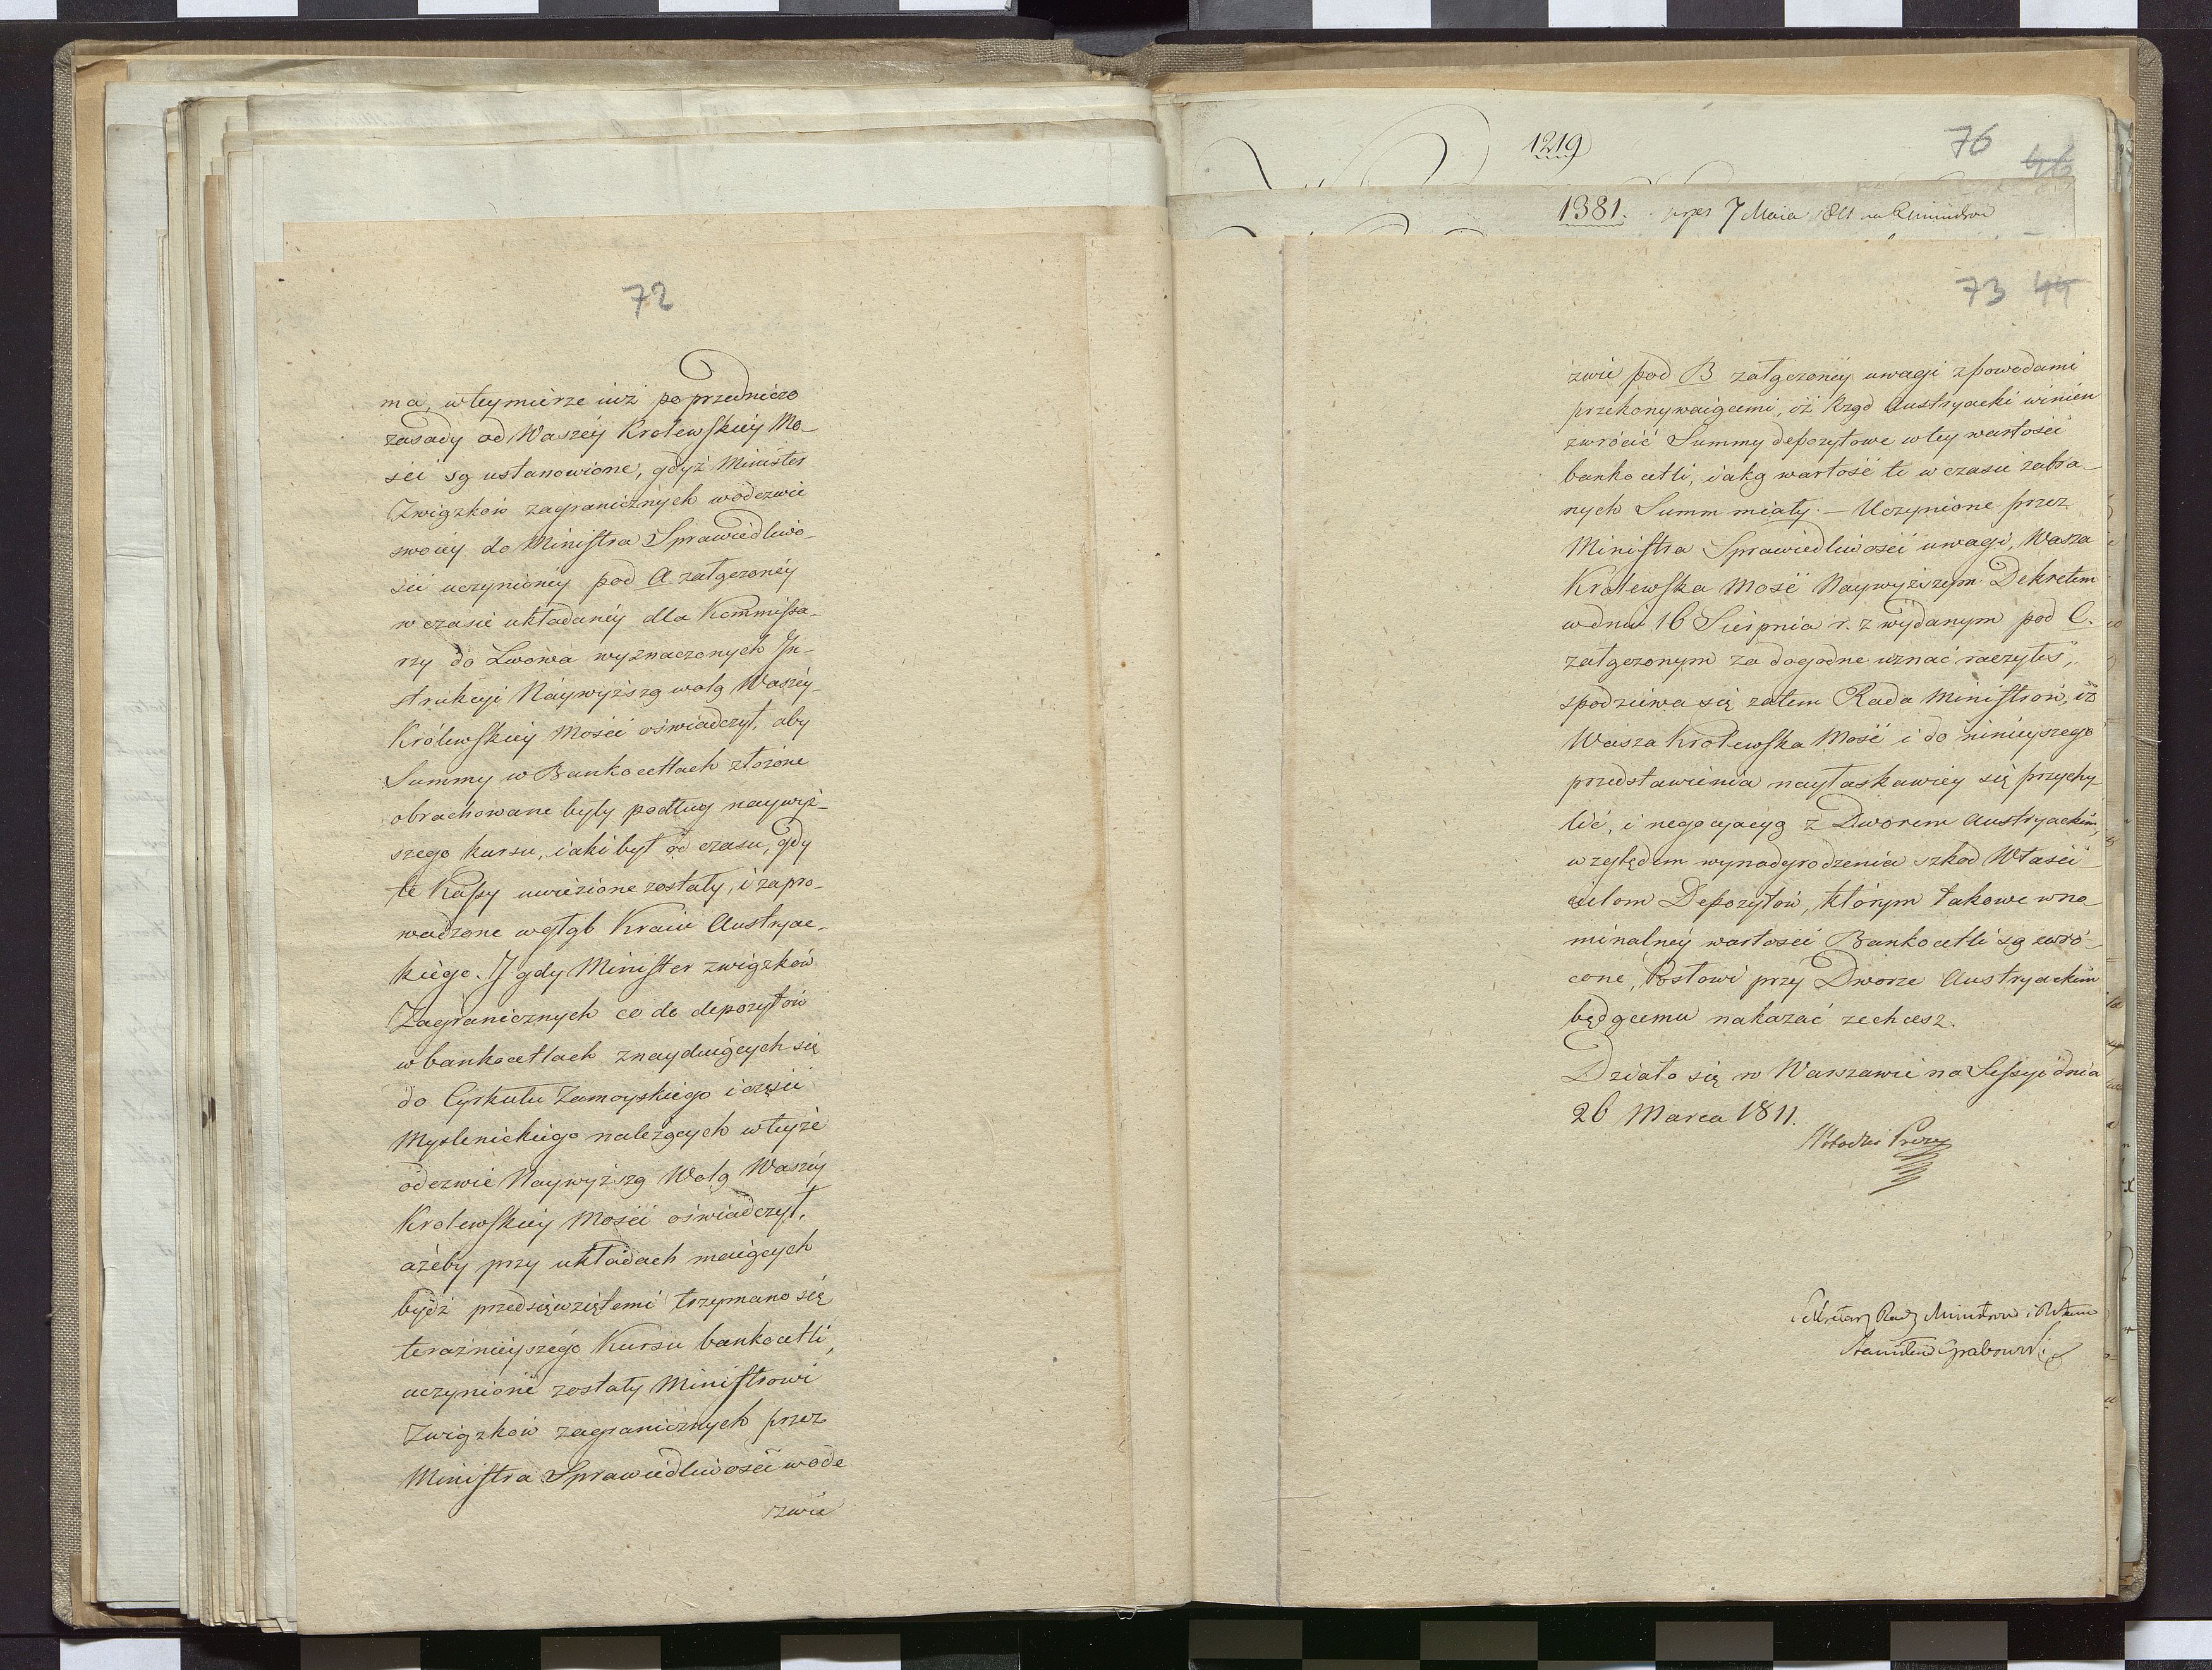 72
ma, w tey mierze iuż poprzedniczo
zasady od Waszey Krolewskiey Mo-
sci są ustanowione, gdyż Minister
Związkow zagranicznych w odezwie
swoiey do Ministra Sprawiedliwo-
ści uczynioney pod A załączoney
w czasie układaney dla Kommissa-
rzy do Lwowa wyznaczonych In-
strukcyi Naywyższą wolą Waszey
Królewskiey Mości oświadczył, aby
Summy w Bankocetlach złożone
obrachowane były podług naywyż-
szego kursu, iaki był od czasu, gdy
te Kassy uwiezione zostały, i zapro-
wadzone w głąb Kraiu Austryac-
kiego. I gdy Minister związków
Zagranicznych co do depozytów
w bankocetlach znayduiących się
do Cyrkułu Zamoyskiego i części
Myslenickiego należących w teyże
odezwie Naywyższą Wolą Waszey
Krolewskiey Mości oświadczył,
ażeby przy układach maiących
bydź przedsięwziętemi trzymano się
teraźnieyszego Kursu bankocetli,
uczynione zostały Ministrowi
Związkow zagranicznych przez
Ministra Sprawiedliwości w ode
zwie
1219
76
46
1381. przs 7 Maia 1811
73 44
zwie pod B załączoney uwagi z powodami
przekonywaiącemi, iż Rząd Austryacki winien
zwrócić Summy depozytowe w tey wartości
bankocetli, iaką wartość te w czasie zabra-
nych Summ miały. — Uczynione przez
Ministra Sprawiedliwości uwagi, Wasza
Krolewska Mość Naywyższym Dekretem
w dniu 16 Sierpnia r. z wydanym pod C.
załączonym za dogodne uznać raczyłeś,
spodziewa się zatem Rada Ministrów, iż
Wasza Krolewska Mość i do ninieyszego
przedstawienia nayłaskawiey się przychy-
lić, i negocyacyą z Dworem Austryackim,
względem wynadgrodzenia szkod Właści-
cielom Depozytów, którym takowe w no-
minalney wartości Bankocetli są zwró-
cone, Posłowi przy Dworze Austryackim
będącemu nakazać zechcesz.
Działo się w Warszawie na Sessyi dnia
26 Marca 1811.
Sekretarz Rady Ministrow i Stanu
Stanisław Grabowski